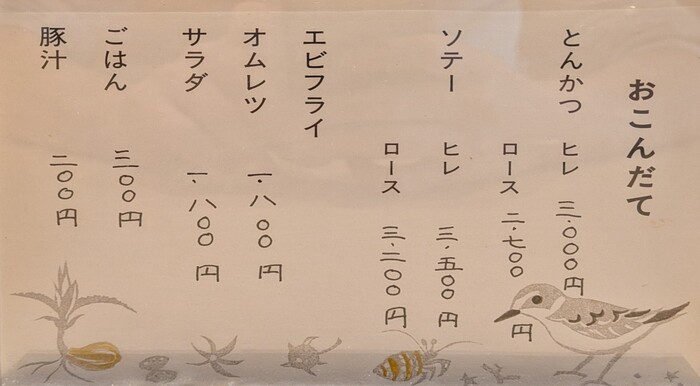 おこんだて
とんかつ ヒレ 三・〇〇〇円
ロース 二・七〇〇円
ソテー ヒレ 三・五〇〇円
ロース 三・二〇〇円
エビフライ
オムレツ 一・八〇〇円
サラダ 一・八〇〇円
ごはん 三〇〇円
豚汁 二〇〇円